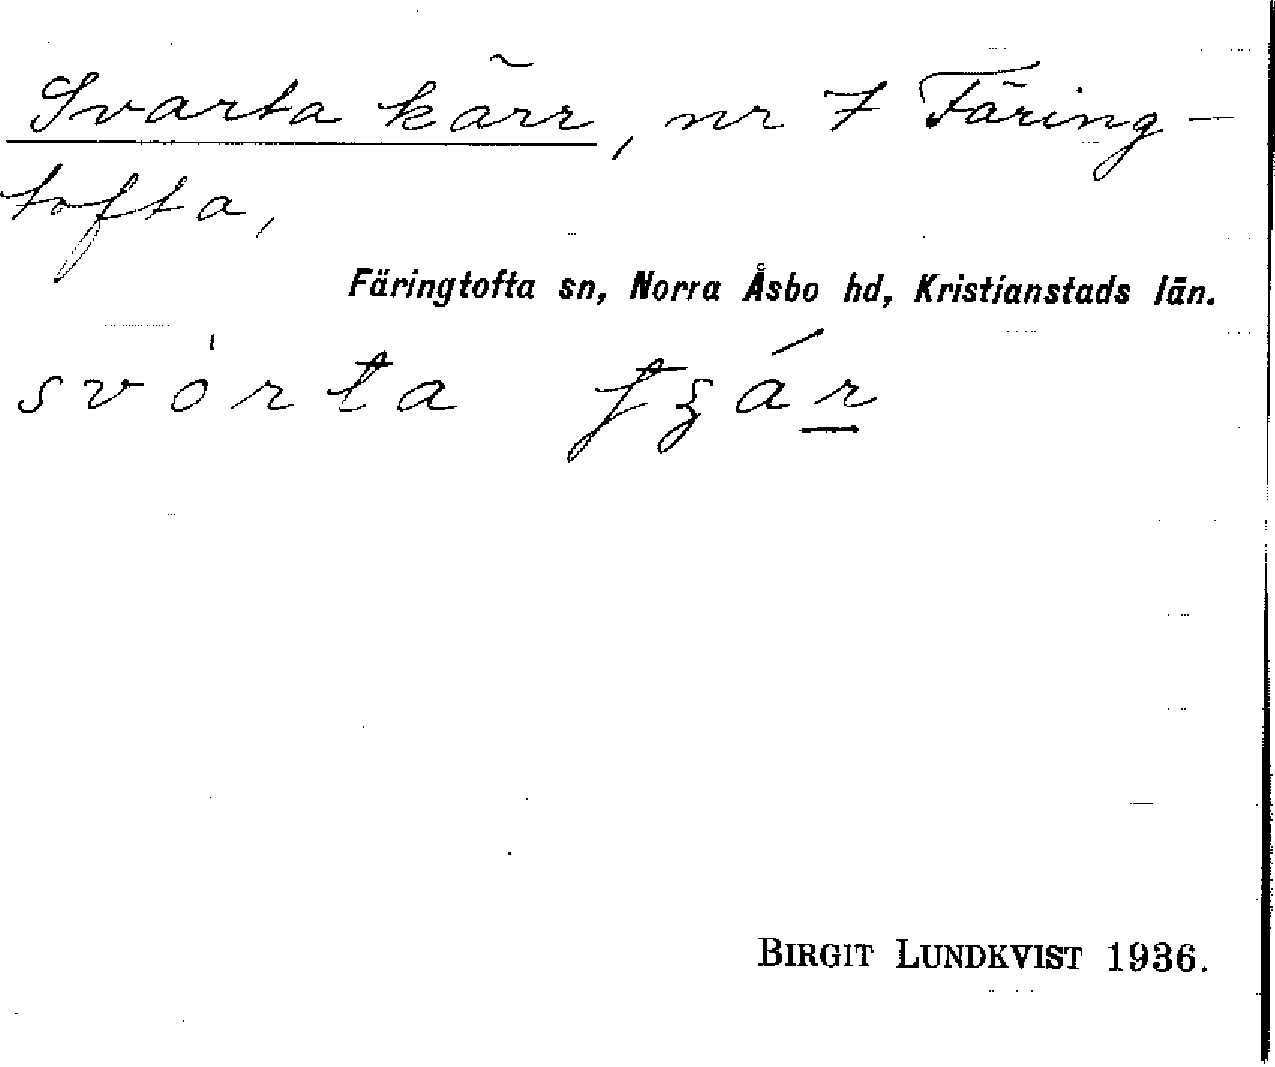 Svarta kärr, nr 7 Färing-
tofta,
Färingtofta sn, Norra Åsbo hd, Kristianstads län.
BIRGIT LUNDKVIST 1936.